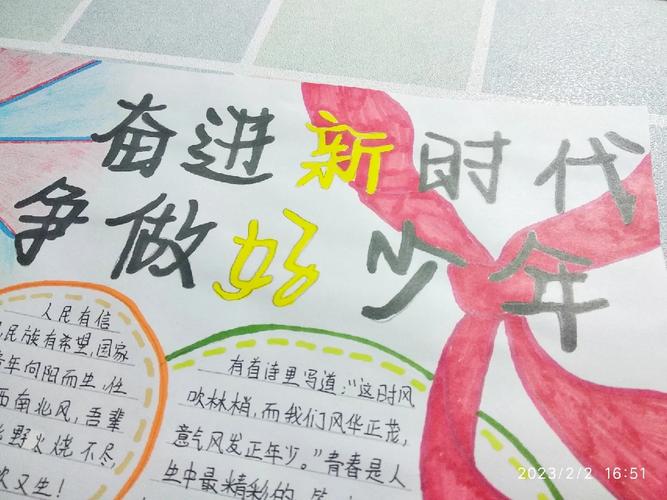 奋进新时代
争做好少年
人民有信
民族有希望,国家
年向阳而生,任
西南北风,吾辈
野火烧不尽
又生!
有首诗里写道:"这时风
吹林梢,而我们风华正茂,
意气风发正年少。"青春是人
生中最精彩的
2023/2/2 16:51